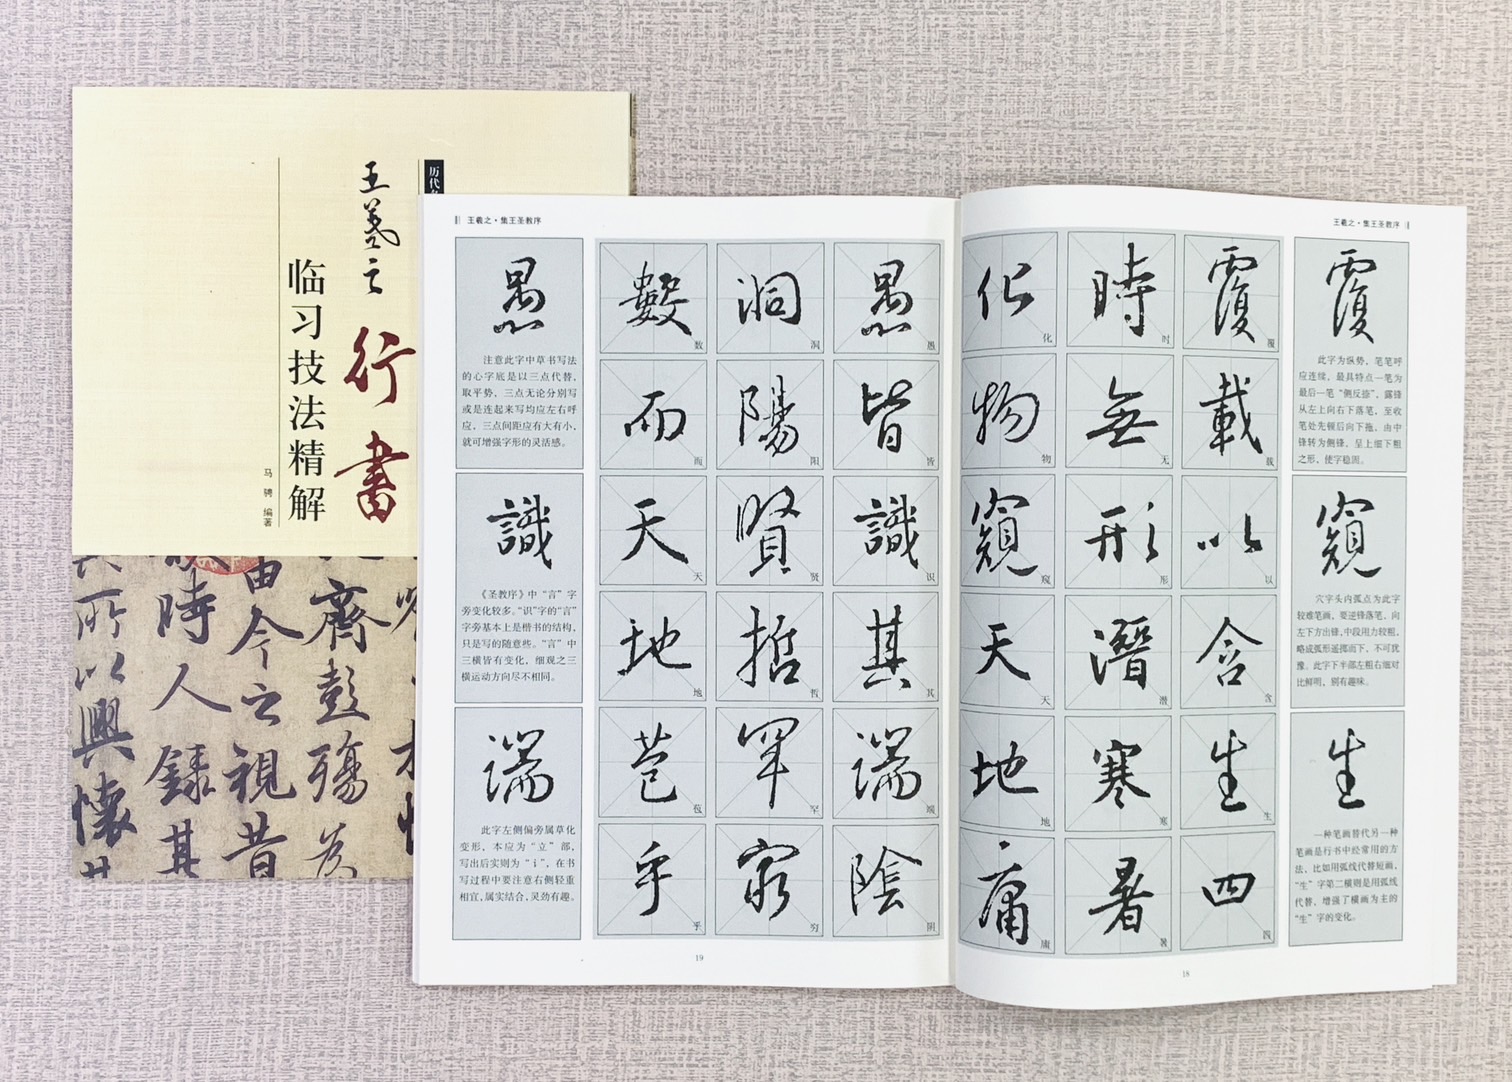 历代
王羲之
行书
临习技法精解
马骋 编著
由今之視昔
齊彭殤爲
時人錄其
所以興懷
王羲之·集王圣教序
覆載以含生四
覆载以含生四
時無形潛寒暑
时无形潜寒暑
化物窺天地庸
化物窥天地庸
覆
此字为纵势，笔笔呼
应连续，最具特点一笔为
最后一笔“侧反捺”，露锋
从左上向右下落笔，至收
笔处先顿后向下拖，由中
锋转为侧锋，呈上细下粗
之形，使字稳固。
窺
穴字头内弧点为此字
较难笔画，要逆锋落笔，向
左下方出锋，中段用力较粗，
略成弧形遥掷而下，不可犹
豫。此字下半部左粗右细对
比鲜明，别有趣味。
生
一种笔画替代另一种
笔画是行书中经常用的方
法，比如用弧线代替短画，
“生”字第二横则是用弧线
代替，增强了横画为主的
“生”字的变化。
18
王羲之·集王圣教序
愚皆識其端陰
愚皆识其端阴
洞陽賢哲罕窮
洞阳贤哲罕穷
數而天地苞乎
数而天地苞乎
愚
注意此字中草书写法
的心字底是以三点代替，
取平势，三点无论分别写
或是连起来写均应左右呼
应，三点间距应有大有小，
就可增强字形的灵活感。
識
《圣教序》中“言”字
旁变化较多。“识”字的“言”
字旁基本上是楷书的结构，
只是写的随意些。“言”中
三横皆有变化，细观之三
横运动方向尽不相同。
端
此字左侧偏旁属草化
变形，本应为“立”部，
写出后实则为“i”，在书
写过程中要注意右侧轻重
相宜，属实结合，灵劲有趣。
19